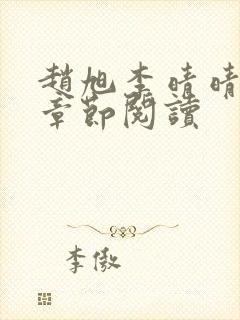 趙旭李晴晴
章節閱讀
李傲